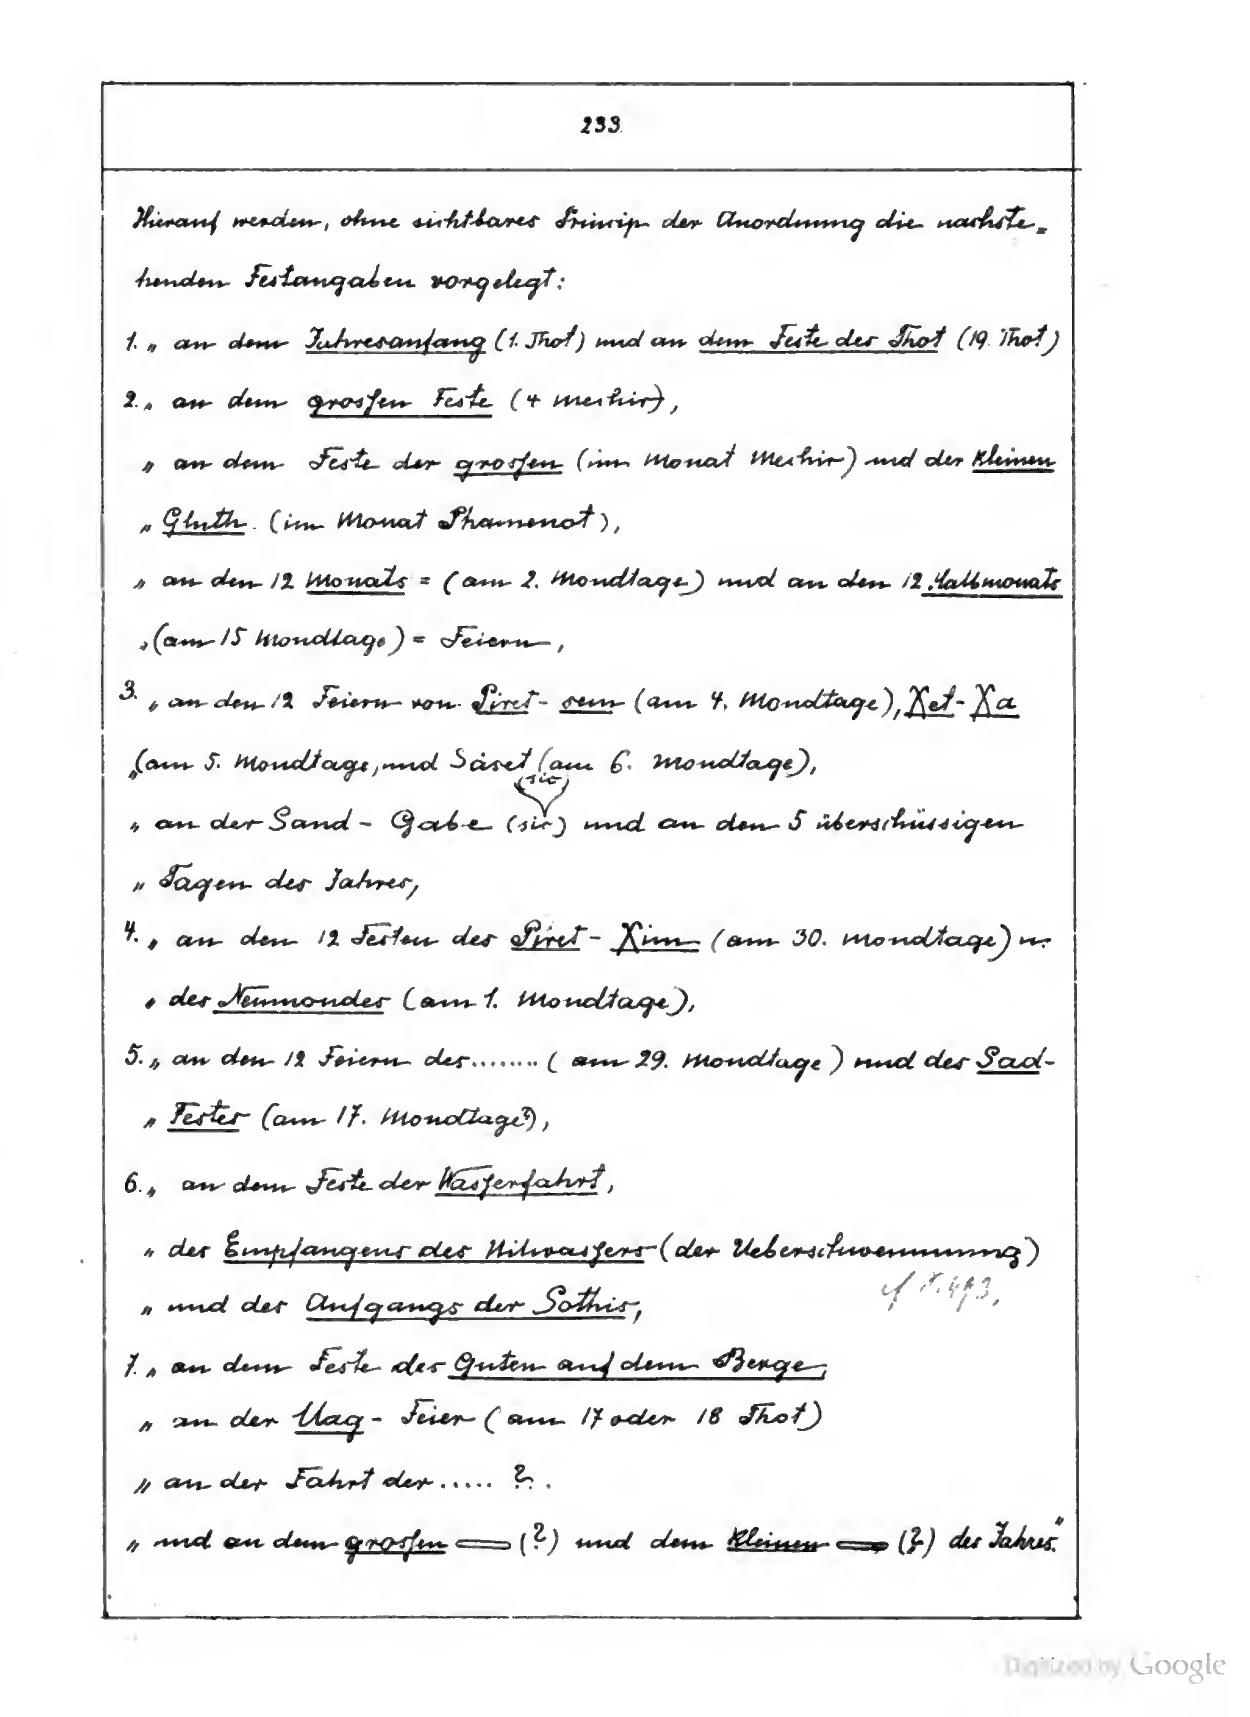 233
Hierauf werden, ohne sichtbares Princip der Anordnung die nachste=
henden Festangaben vorgelegt:
1. „ an dem Jahresanfang (1. Thot) und an dem Feste des Thot (19. Thot)
2. „ an dem grossen Feste (4 Mechir),
„ an dem Feste der grossen (im Monat Mechir) und der kleinen
„ Gluth (im Monat Phamenot),
„ an den 12 Monats = (am 2. Mondtage) und an den 12 Halbmonats
„ (am 15 Mondtage) = Feiern,
3. „ an den 12 Feiern von Piret-sem (am 4. Mondtage), Xet-Xa
„ (am 5. Mondtage, und Sáset (am 6. Mondtage),
(sic)
„ an der Sand-Gabe (sic) und an den 5 überschüssigen
„ Tagen des Jahres,
4. „ an den 12 Festen des Piret-Xim (am 30. Mondtage) u.
„ des Neumondes (am 1. Mondtage),
5. „ an den 12 Feiern des........ (am 29. Mondtage) und des Sad-
„ Festes (am 17. Mondtage?),
6. „ an dem Feste der Wasserfahrt,
„ des Empfangens des Nilwassers (der Ueberschwemmung)
„ und des Aufgangs der Sothis,
cf 493.
7. „ an dem Feste des Guten auf dem Berge,
„ an der Uag-Feier (am 17 oder 18 Thot)
„ an der Fahrt der ..... ? .
„ und an dem grossen (?) und dem kleinen (?) des Jahres."
Digitized by Google